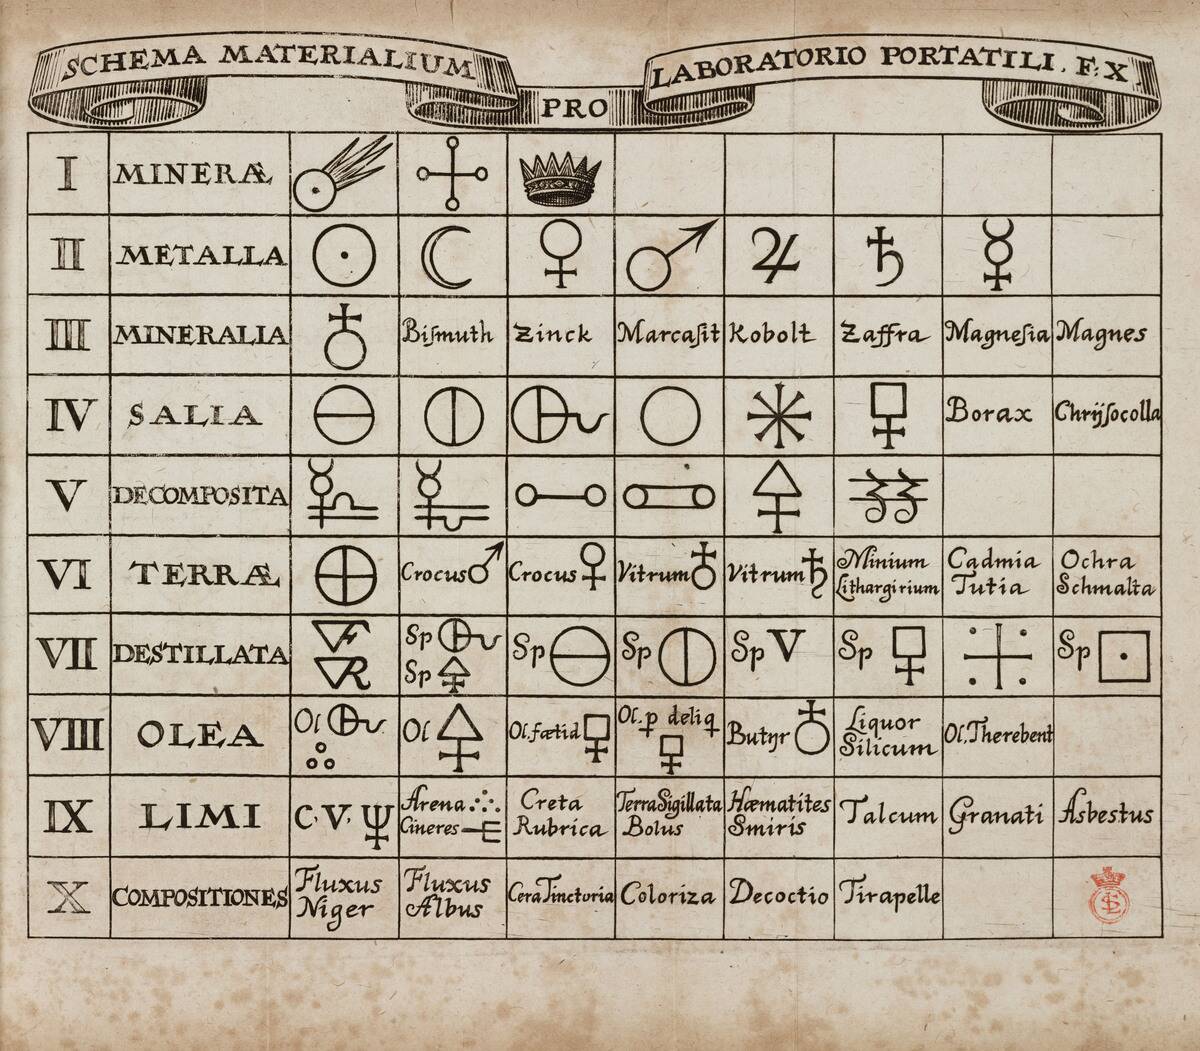 SCHEMA MATERIALIUM
PRO
LABORATORIO PORTATILI. F: X
I MINERÆ
II METALLA ☉ ☾ ♀ ♂ ♃ ♄ ☿
III MINERALIA ♁ Biſmuth Zinck Marcaſit Kobolt Zaffra Magneſia Magnes
IV SALIA Borax Chrÿſocolla
V DECOMPOSITA
VI TERRÆ Crocus♂ Crocus♀ Vitrum♁ Vitrum♄ Minium Cadmia Ochra
Lithargirium Tutia Schmalta
VII DESTILLATA F Sp Sp Sp Sp V Sp Sp
R Sp
VIII OLEA Ol Ol Ol.fœtid Ol. p deliq Butyr♁ Liquor Ol.Therebent
Silicum
IX LIMI C. V. Ψ Arena Creta TerraSigillata Hæmatites Talcum Granati Asbestus
Cineres Rubrica Bolus Smiris
X COMPOSITIONES Fluxus Fluxus CeraTinctoria Coloriza Decoctio Tirapelle
Niger Albus